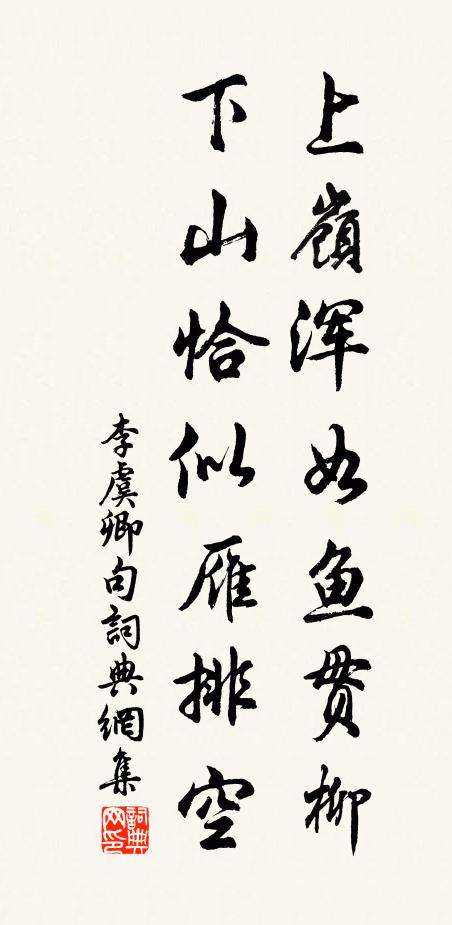 上嶺浑如鱼贯柳
下山恰似雁排空
李虞卿句詞典網集
詞典网印